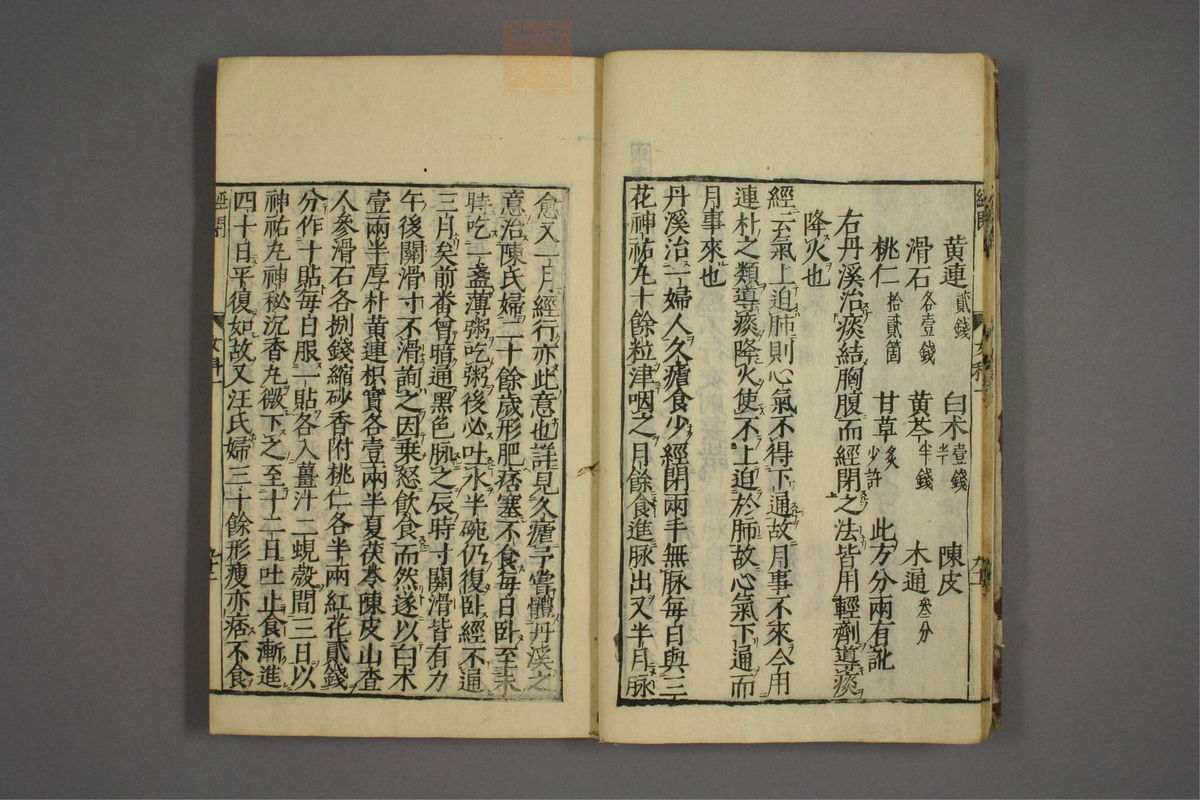 黄連貳錢　白朮壹錢半　陳皮
滑石各壹錢　黄芩半錢　木通叁分
桃仁拾貳箇　甘草炙少許　此方分兩有訛
右丹溪治痰結胸腹而經閉之法皆用輕劑導痰
降火也
經云氣上迫肺則心氣不得下通故月事不來今用
連朴之類導痰降火使不上迫於肺故心氣下通而
月事來也
丹溪治一婦人久瘧食少經閉兩手無脉每日與三
花神祐丸十餘粒津咽之月餘食進脉出又半月脉
愈又一月經行亦此意也詳見久瘧予嘗體丹溪之
意治陳氏婦二十餘歳形肥痞塞不食每日卧至未
時吃一盞薄粥吃粥後必吐水半碗仍復卧經不通
三月矣前畨曾暗通黑色脉之辰時寸關滑皆有力
午後關滑寸不滑詢之因乗怒飲食而然遂以白朮
壹兩半厚朴黄連枳實各壹兩半夏茯苓陳皮山査
人參滑石各捌錢縮砂香附桃仁各半兩紅花貳錢
分作十貼每日服一貼各入薑汁二蜆殼間三日以
神祐丸神秘沉香丸微下之至十二旦吐止食漸進
四十日平復如故又汪氏婦三十餘形瘦亦痞不食